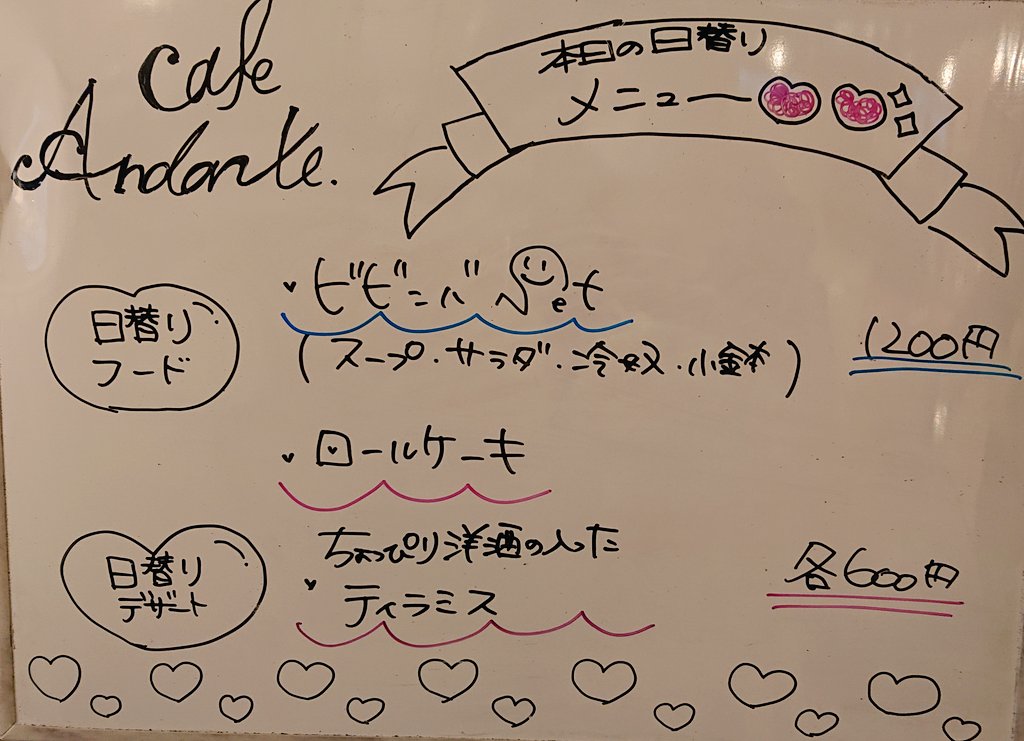 Cafe
Andante.
本日の日替り
メニュー
日替り
フード
ビビンバ Set
(スープ・サラダ・冷奴・小鉢)
1200円
ロールケーキ
日替り
デザート
ちょっぴり洋酒の入った
ティラミス
各600円